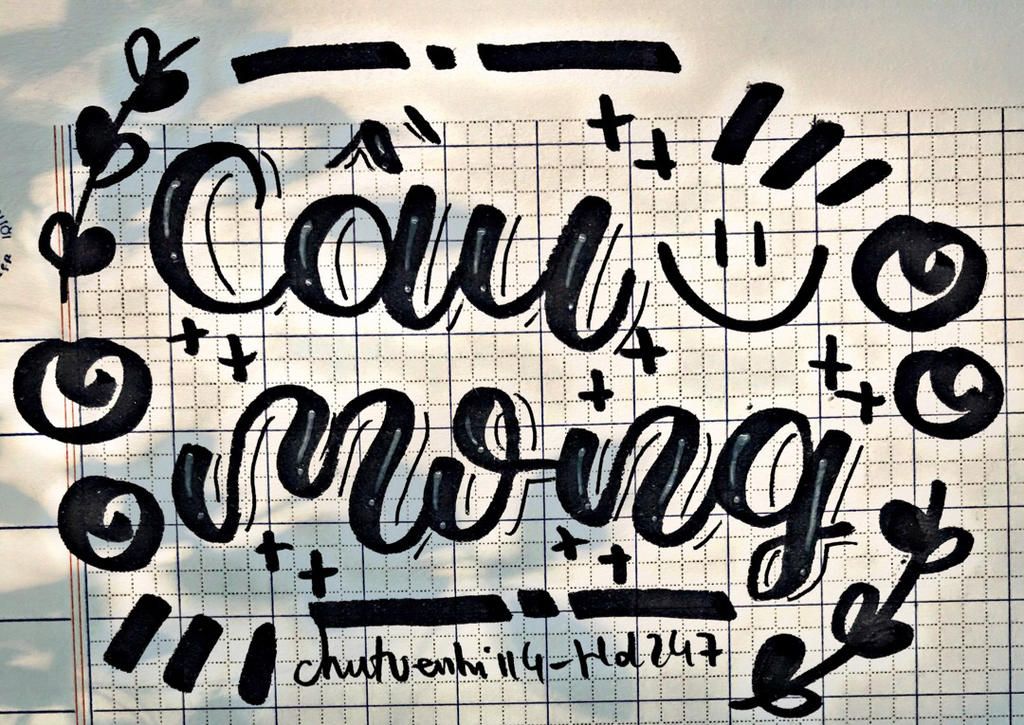 Cầu
mong
chutuenhi114-Hd247